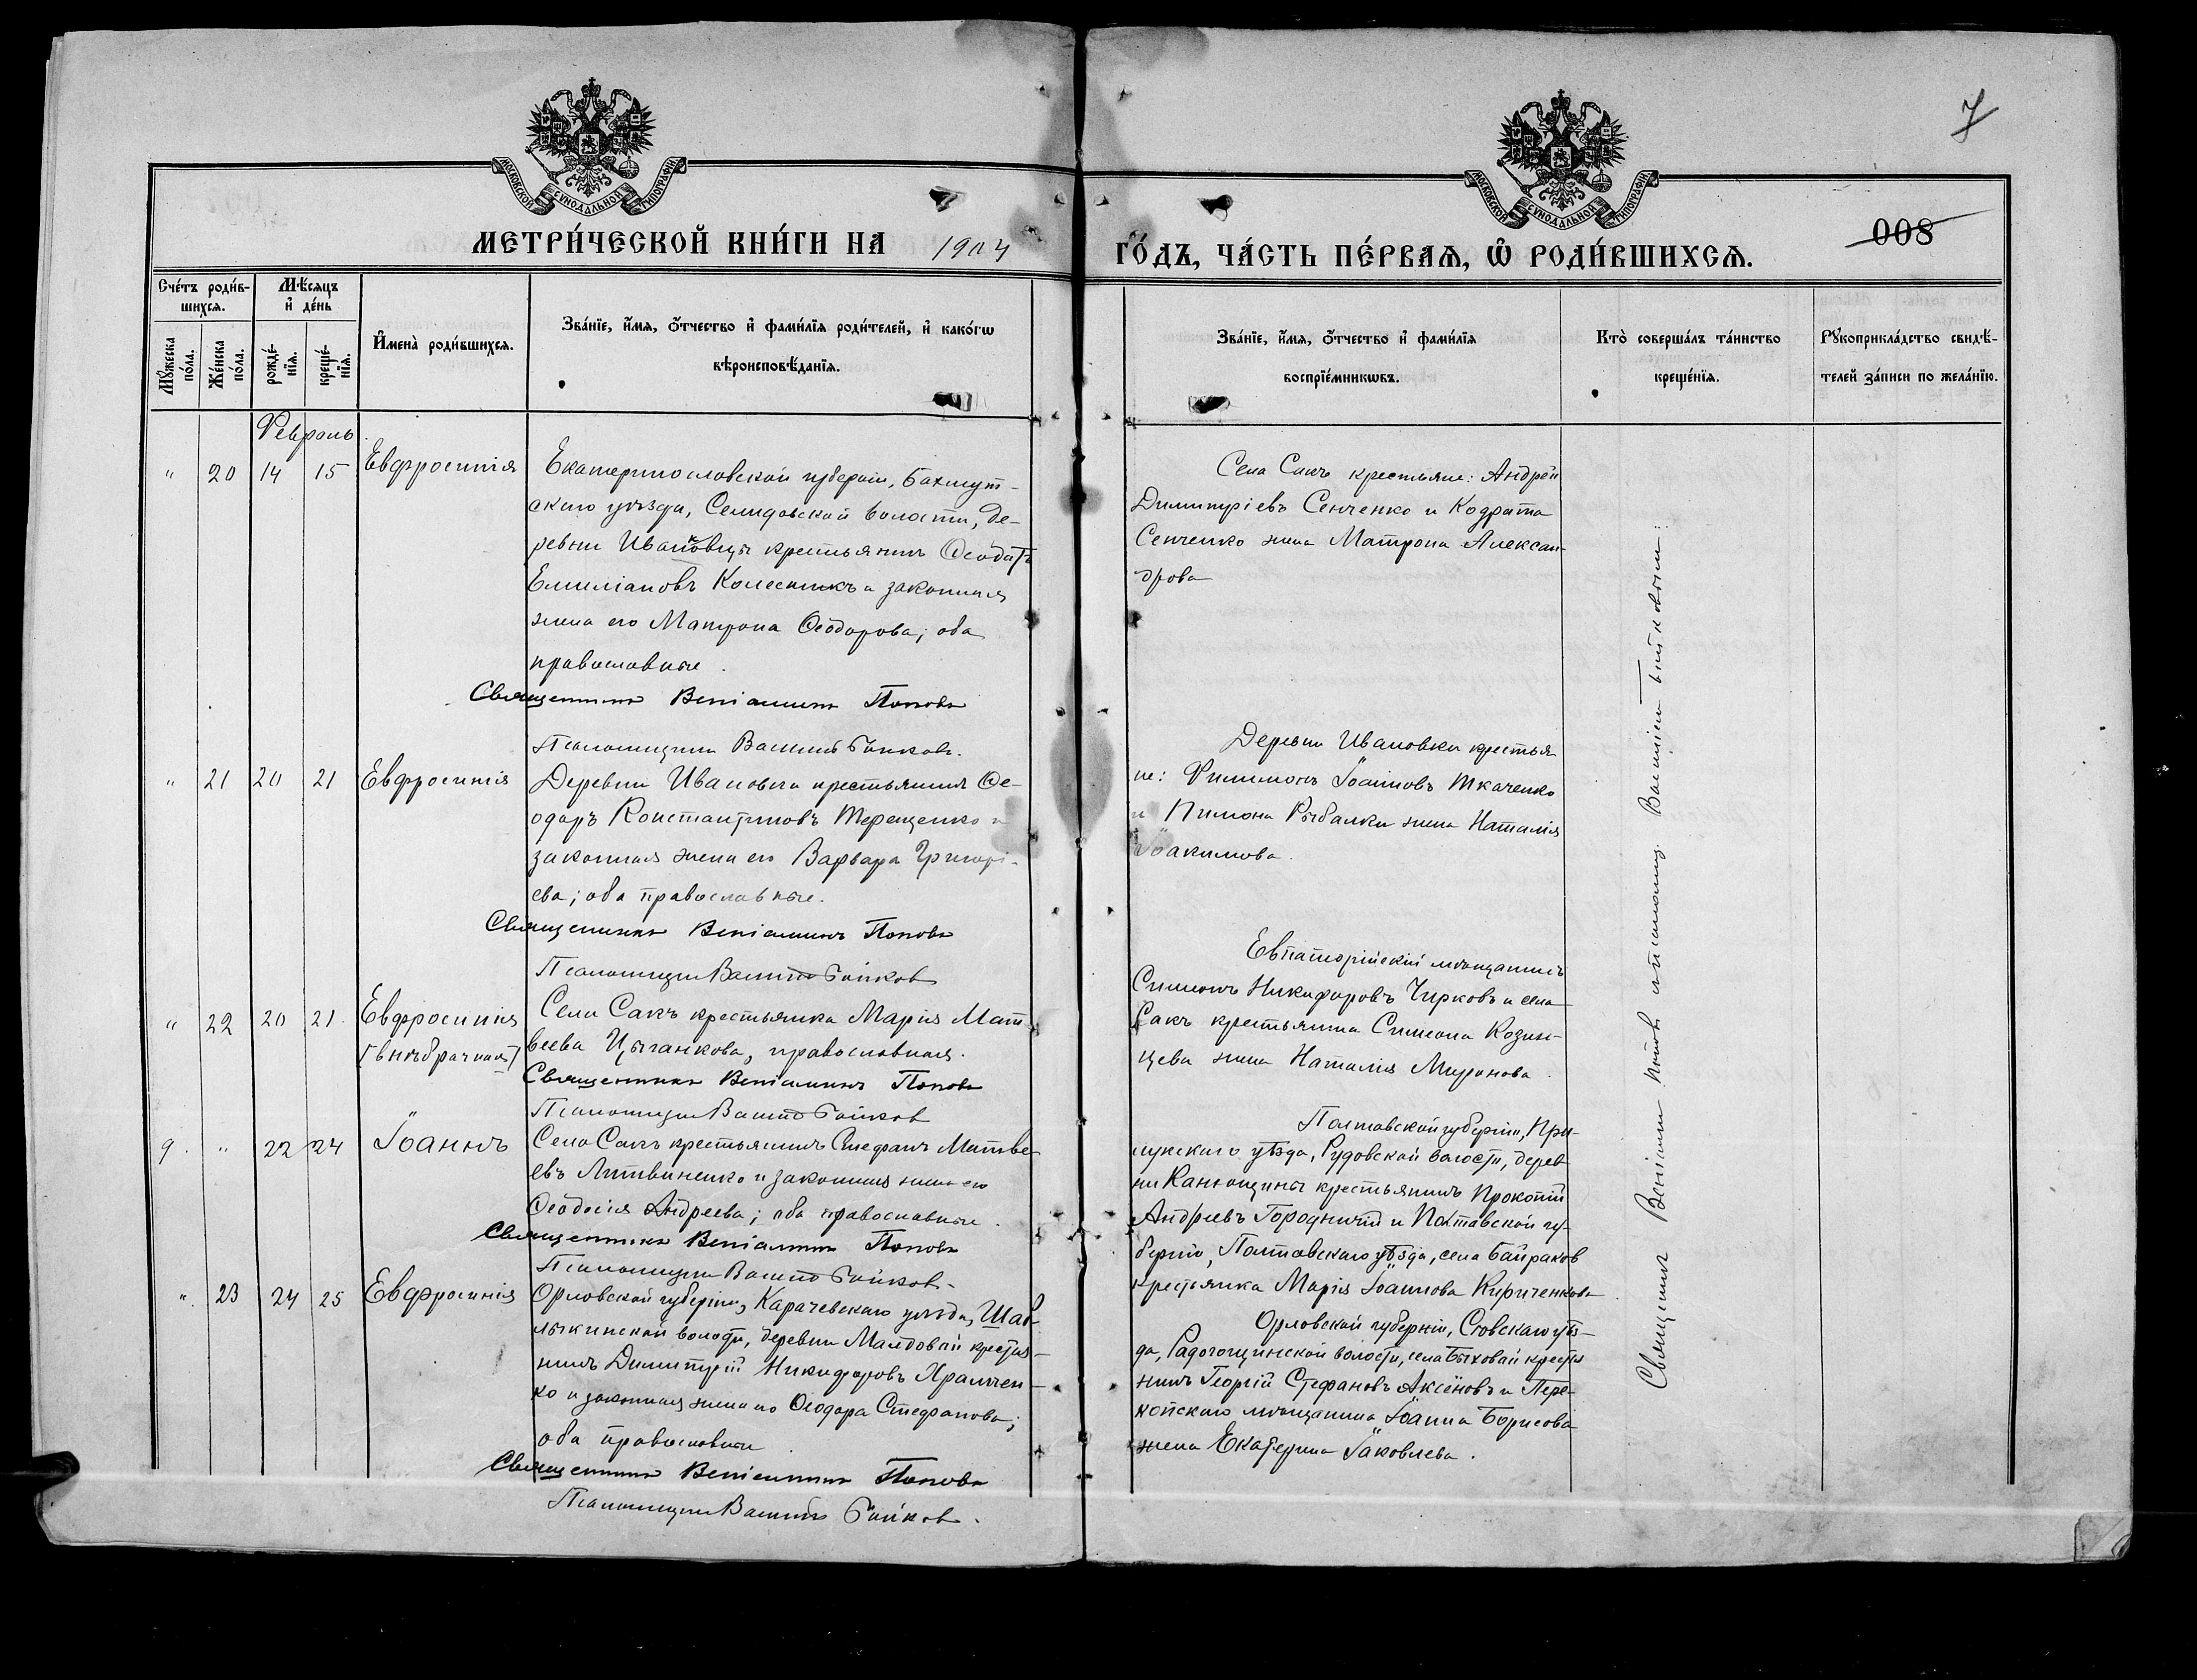 7
МОСКОВСКОЙ СѴНОДАЛЬНОЙ ТИПОГРАФІИ
МОСКОВСКОЙ СѴНОДАЛЬНОЙ ТИПОГРАФІИ
МЕТРИ́ЧЕСКОЙ КНИ́ГИ НА 1904 ГО́ДЪ, ЧА́СТЬ ПЕ́РВАѦ, Ѿ РОДИ́ВШИХСѦ.
008
Сче́тъ роди́в-
шихсѧ.
Мѣ́сяцъ
и҆ де́нь
Мꙋ́жеска
по́ла.
Же́нска
по́ла.
рожде́-
нїѧ.
креще́-
нїѧ.
И҆мена̀ роди́вшихсѧ.
Зва́нїе, и҆́мѧ, ѻ҆́тчество и҆ фами́лїѧ роди́телей, и҆ како́гѡ
вѣроисповѣ́данїѧ.
Зва́нїе, и҆́мѧ, ѻ҆́тчество и҆ фами́лїѧ
воспрїе́мникѡвъ.
Кто̀ соверша́лъ та́инство
креще́нїѧ.
Рꙋкоприкла́дство свидѣ́-
телей за́писи по жела́нїю.
Февраль.
" 20 14 15 Евфросинія
Екатеринославской губерніи, Бахмут-
скаго уѣзда, Селидовской волости, де-
ревни Ивановки крестьянинъ Ѳеодотъ
Емиліановъ Колесникъ и законная
жена его Матрона Ѳеодорова; оба
православные.
Священникъ Веніаминъ Поповъ
Псаломщикъ Василій Бойковъ.
Села Сакъ крестьяне: Андрей
Димитріевъ Сенченко и Кодрата
Сенченко жена Матрона Алексан-
дрова
" 21 20 21 Евфросинія
Деревни Ивановки крестьянинъ Ѳе-
одоръ Константиновъ Терещенко и
законная жена его Варвара Григорі-
ева; оба православные.
Священникъ Веніаминъ Поповъ
Псаломщикъ Василій Бойковъ
Деревни Ивановки крестья-
не: Филимонъ Іоанновъ Ткаченко
и Пимона Рыбалки жена Наталія
Іоакимова.
" 22 20 21. Евфросинія
[внѣбрачная]
Села Сакъ крестьянка Марія Мат-
веева Цыганкова, православная.
Священникъ Веніаминъ Поповъ
Псаломщикъ Василій Бойковъ
Евпаторійскій мѣщанинъ
Симеонъ Никифоровъ Чирковъ и села
Сакъ крестьянина Симеона Козин-
цева жена Наталія Миронова.
9. " 22 24 Іоаннъ
Села Сакъ крестьянинъ Стефанъ Матве-
евъ Литвиненко и законная жена его
Ѳеодосія Андреева; оба православные.
Священникъ Веніаминъ Поповъ
Псаломщикъ Василій Бойковъ.
Полтавской губерніи, При-
лукскаго уѣзда, Рудовской волости, дерев-
ни крестьянинъ Прокопій
Андреевъ Городничій и Полтавской гу-
берніи, Полтавскаго уѣзда, села Байраковъ
крестьянка Марія Іоаннова Кириченкова.
" 23 24 25 Евфросинія
Орловской губерніи, Карачевскаго уѣзда, Шаб-
лыкинской волости, деревни крестья-
нинъ Димитрій Никифоровъ Храмчен-
ко и законная жена его Ѳеодора Стефанова;
оба православные.
Священникъ Веніаминъ Поповъ
Псаломщикъ Василій Бойковъ.
Орловской губерніи, Сѣвскаго уѣз-
да, Радогощинской волости, села Быховой крестья-
нинъ Георгій Стефановъ Аксёновъ и Пере-
копскаго мѣщанина Іоанна Борисова
жена Екатерина Іаковлева.
Священникъ Веніаминъ Поповъ и псаломщ. Василіемъ Бойковымъ: